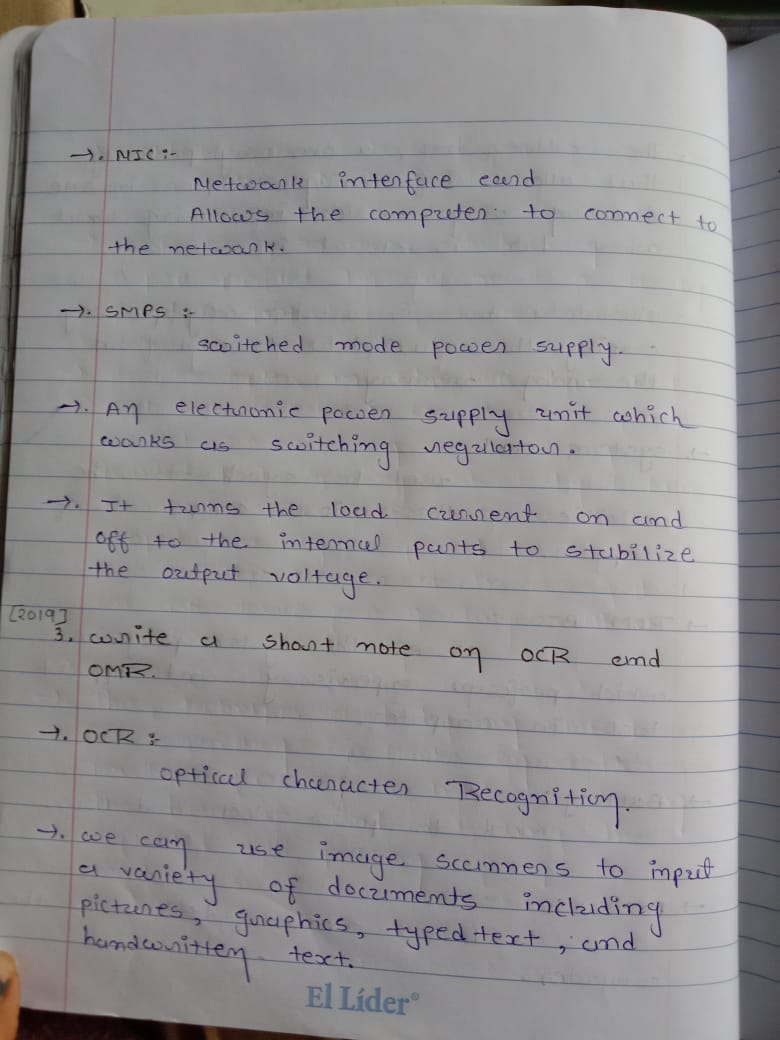 →. NIC :-
Network interface card
Allows the computer to connect to
the network.
→. SMPS :-
switched mode power supply.
→. An electronic power supply unit which
works as switching regulator.
→. It turns the load current on and
off to the internal parts to stabilize
the output voltage.
[2019]
3. write a short note on OCR and
OMR.
→. OCR :-
optical character Recognition.
→. we can use image scanners to input
a variety of documents including
pictures, graphics, typed text, and
handwritten text.
El Líder®